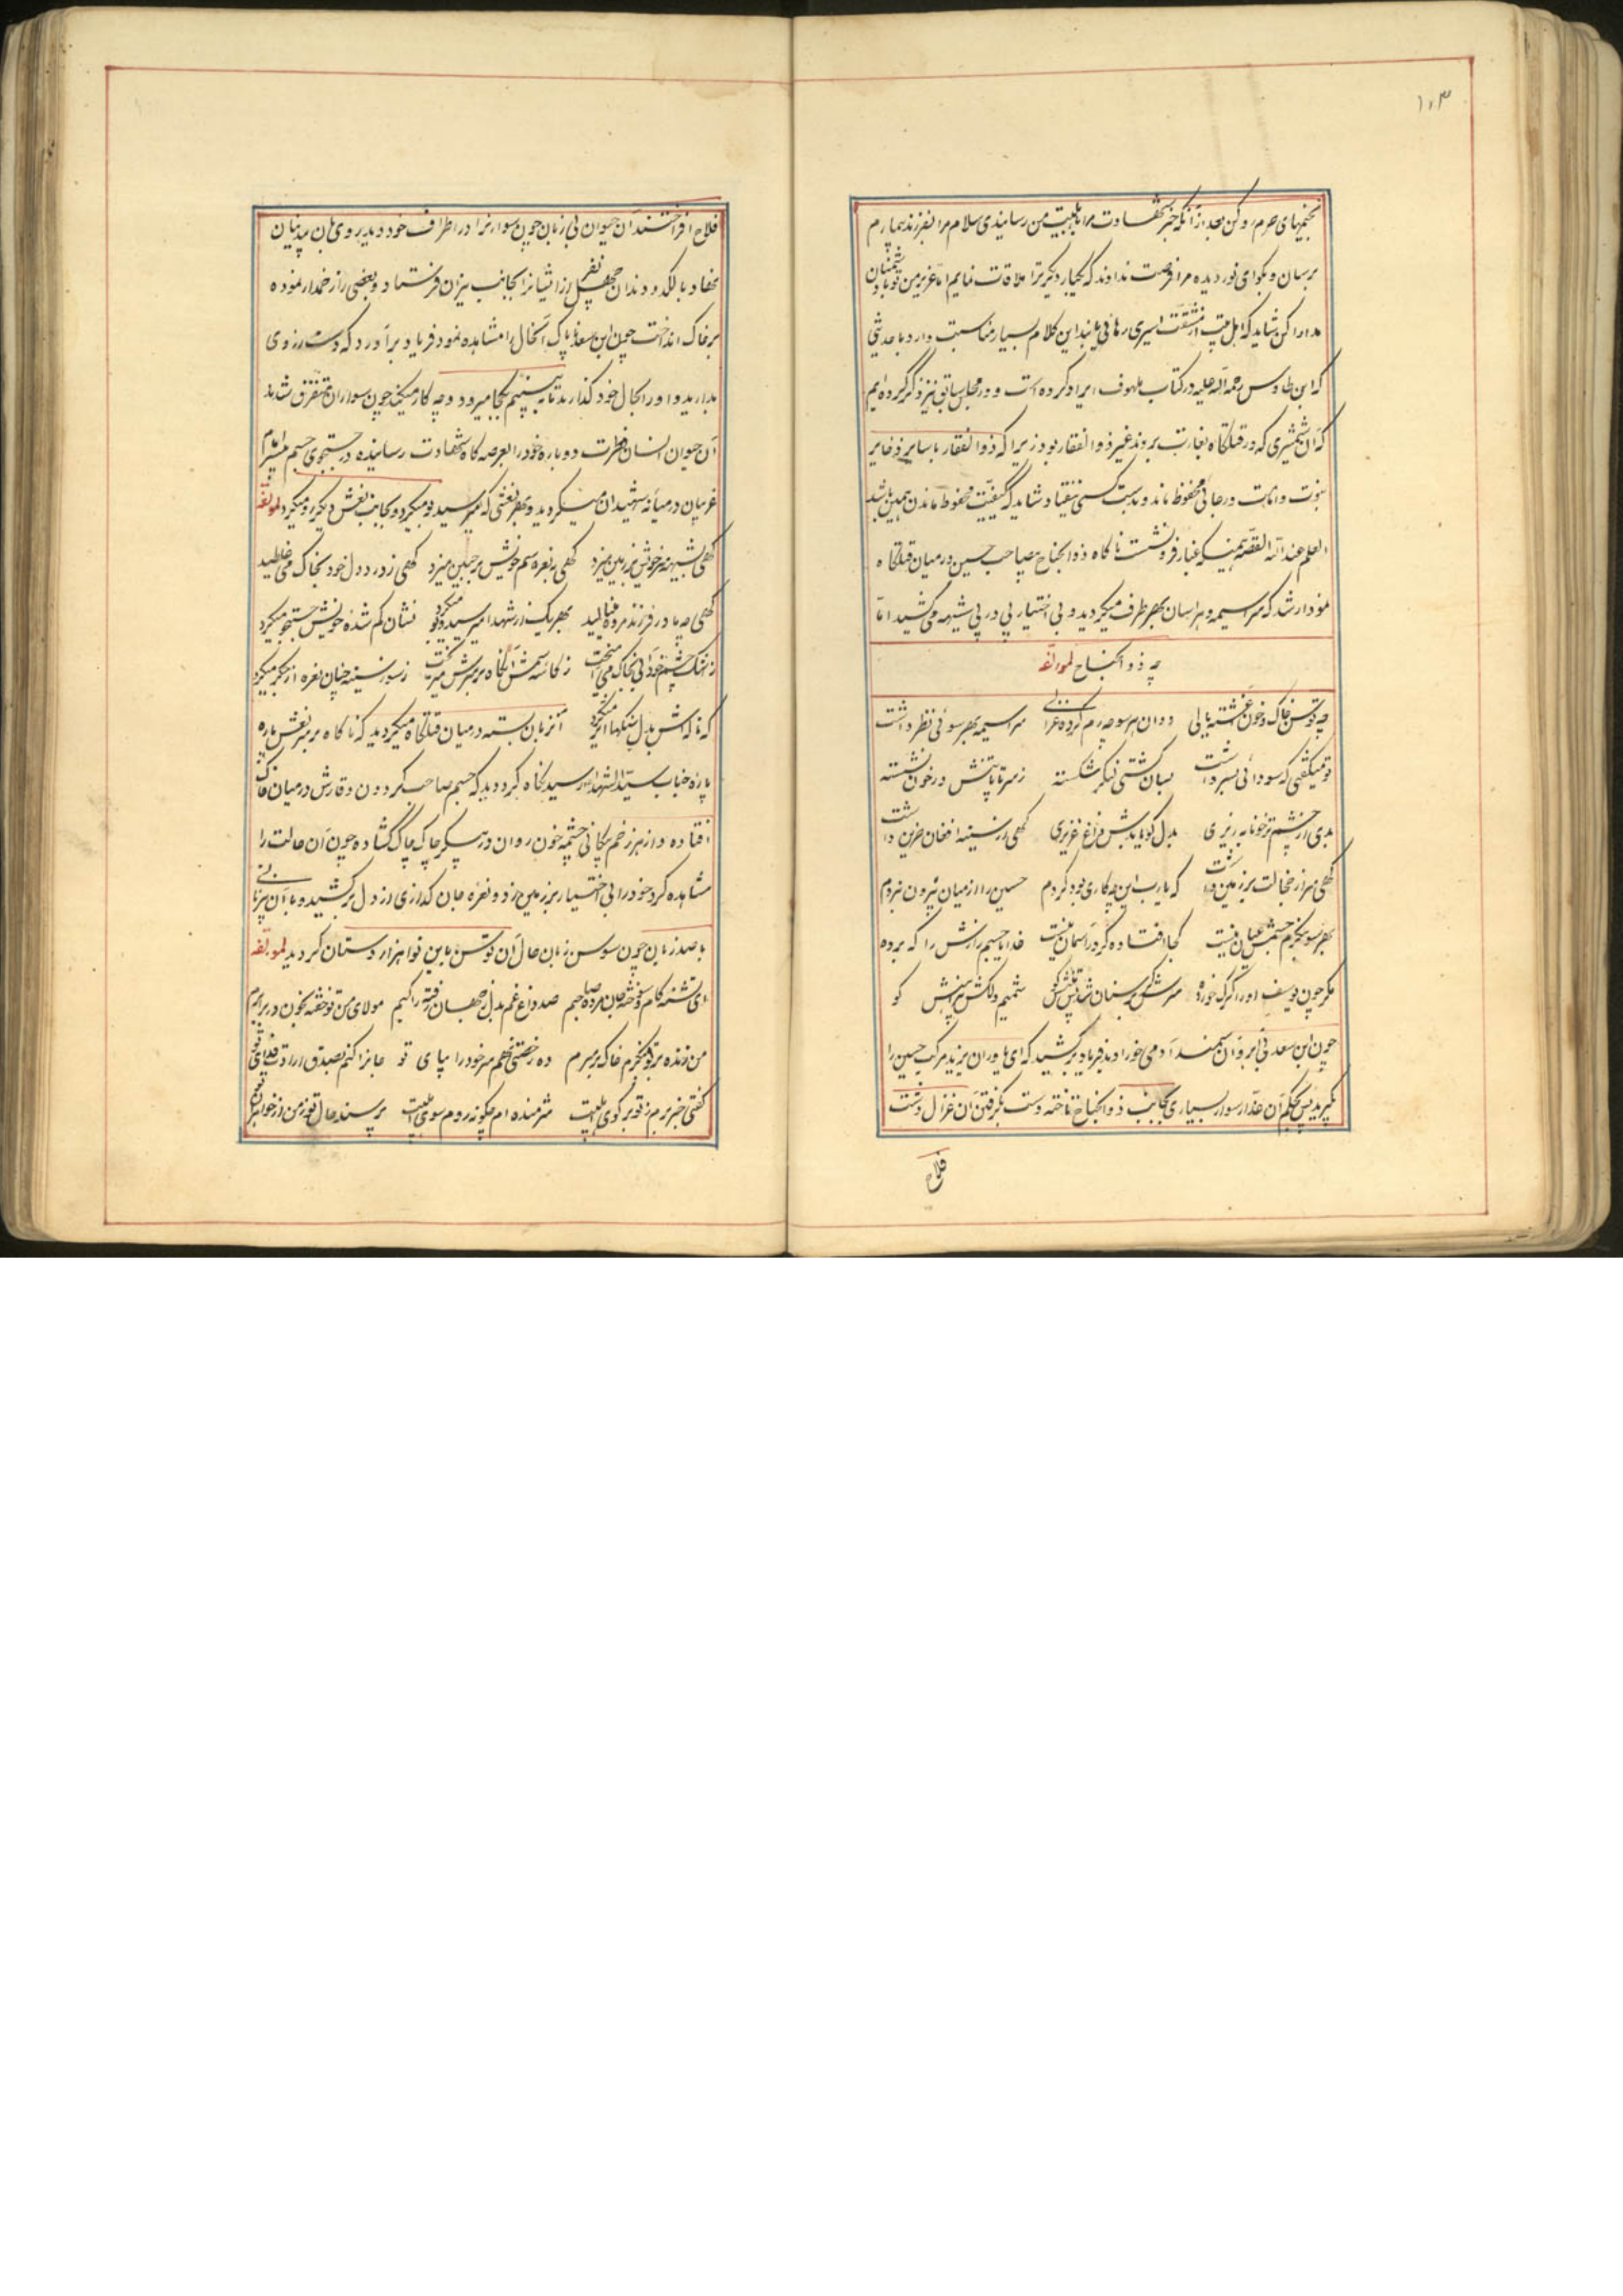 ۱۰۳
بخیمهای حرم رو کن بعد از آنکه خبر شهادت مرا باهلبیت من رسانیدی سلام مرا بفرزند بیمارم
برسان و بگو ای نور دیده مرا فرصت ندادند که یکبار دیگر ترا ملاقات نمایم اما عزیز من تو با دشمنان
مدارا کن شاید که اهل بیت از مشقت اسیری رهائی یابند این کلام بسیار مناسبت دارد با حدیثی
که ابن طاوس رحمه الله علیه در کتاب ملهوف ایراد کرده است و در مجلس سابق نیز ذکر کرده ایم
که آن شمشیری که در قتلگاه بغارت بردند غیر ذو الفقار بود زیرا که ذو الفقار با سایر ذخایر
نبوت و امامت در جائی محفوظ ماند و بدست کسی نیفتاد شاید که کیفیت محفوظ ماندن همین باشد
العلم عند الله القصه همینکه غبار فرو نشست ناگاه ذو الجناح بیصاحب حسین در میان قتلگاه
نمودار شد که سراسیمه و هراسان بهر طرف میگردید و بی اختیار پی در پی شیهه می کشید اما
چه ذو الجناح لمولفه
چه توسن خاک و خون آغشته یالی دوان هر سو چه رم کرده غزالی سراسیمه بهر سوئی نظر داشت
تو میگفتی که سودائی بسر داشت بسان کشتی لنگر شکسته ز سر تا پا تنش در خون نشسته
بدی از چشم تر خونابه ریزی بدل گویا بدش داغ عزیزی گهی از سینه افغان حزین داشت
گهی سر از خجالت بر زمین داشت که یارب این چه کاری بود کردم حسین را از میان بیرون نبردم
بهر سو بنگرم جسمش عیان نیست کجا افتاده گر در آسمان نیست خدایا جسم زارش را که برده
مگر چون یوسف او را گرگ خورده سرش گر بر سنان شد پس تنش کو شمیم دلکش پیراهنش کو
چون ابن سعد بی آبرو آن سمند آدمی خو را دید فریاد بر کشید که ای یاوران یزید مرکب حسین را
بگیرید پس بحکم آن غدار سوار بسیاری بجانب ذو الجناح تاخته دست بگرفتن آن غزال دشت
فلاح
فلاح افراختند آن حیوان بی زبان چون سوارانرا در اطراف خود دید روی بآن بیدینان
نهاد با لگد و دندان چهل نفر از اشیانرا بجانب نیزان فرستاد و بعضی را زخمدار نموده
بر خاک انداخت چون ابن سعد ناپاک آنحال را مشاهده نمود فریاد بر آورد که دست از وی
بدارید و او را بحال خود گذارید تا به بینیم بکجا میرود و چه کار میکند چون سواران متفرق شدند
آن حیوان انسان فطرت دوباره خود را بعرصه گاه شهادت رسانیده در جستجوی جسم امام
غریبان در میانه شهیدان میگردید و بهر نعشی که میرسید بو میکرد و بجانب نعش دیگر رو میکرد لمولفه
گهی بشیهه سر خویش بر زمین میزد گهی بنعره سم خویش بر جبین میزد گهی ز درد دل خود بخاک می غلطید
گهی چه مادر فرزند مرده مینالید بهر یک از شهدا میرسید و بو میکرد نشان گم شده خویش جستجو میکرد
ز اشک چشم خود آبی بخاک می آمیخت ز کاسه سمش آنگاه بر سرش میریخت ز سوز سینه چنان نعره از جگر میکرد
که ناله اش بدل سنگها اثر میکرد آنزبان بسته در میان قتلگاه میگردید که ناگاه بر سر نعش پاره
پاره جناب سید الشهدا رسید نگاه کرد دید که جسم صاحب گردون وقارش در میان خاک
افتاده و از هر زخم پیکانی چشمه خون روان و در پیکر چاک چاک گشاده چون آن حالت را
مشاهده کرد خود را بی اختیار بر زمین زد و نعره جان گدازی از دل بر کشید و با آن بیزبانی
با صد زبان چون سوسن زبان حال آن توسن باین نوا هزار دستان گردید لمولفه
ای تشنه کام سوخته جان مرده صاحبم صد داغ غم بدل ز جهان رفته راکبم مولای من تو خفته بخون در برابرم
من زنده بر تو بنگرم خاک بر سرم ده رخصتی نهم سر خود را بپای تو جانرا کنم بصدق ارادت فدای تو
گفتی خبر برم ز تو بر کوی اهلبیت شرمنده ام چگونه روم سوی اهلبیت پرسند حال تو ز من ار خواهران